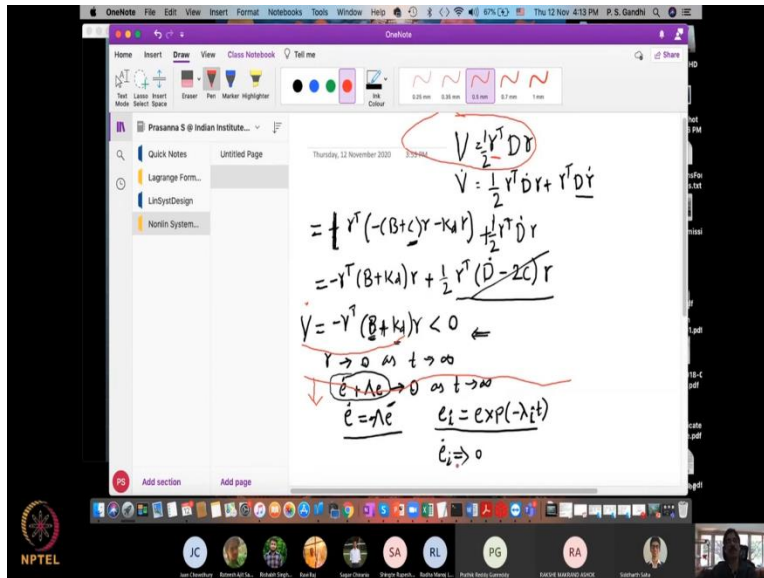 OneNote File Edit View Insert Format Notebooks Tools Window Help 67% Thu 12 Nov 4:13 PM P. S. Gandhi
OneNote
Home Insert Draw View Class Notebook Tell me Share
Text Mode Lasso Select Insert Space Eraser Pen Marker Highlighter Ink Colour 0.25 mm 0.35 mm 0.5 mm 0.7 mm 1 mm
Prasanna S @ Indian Institute...
Quick Notes
Lagrange Form...
LinSystDesign
Nonlin System...
Untitled Page
Thursday, 12 November 2020
V = 1/2 r^T D r
V̇ = 1/2 r^T Ḋ r + r^T D ṙ
= r^T (-(B+C)r - K_d r) + 1/2 r^T Ḋ r
= -r^T (B+K_d) r + 1/2 r^T (Ḋ - 2C) r
V̇ = -r^T (B+K_d) r < 0 ⇐
r → 0 as t → ∞
ė + Λe → 0 as t → ∞
ė = -Λe e_i = exp(-λ_i t)
ė_i ⇒ 0
PS Add section Add page
NPTEL
JC SA RL PG RA
Juan Chowdhury Ratnesh Ajit Sa... Rishabh Singh... Ravi Raj Sagar Chirania Shingte Rupesh... Radha Manoj L... Prathik Reddy Gunreddy RAKSHE MAKRAND ASHOK Siddharth Saha